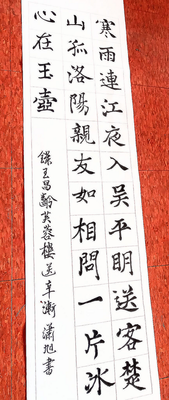 寒雨連江夜入吳平明送客楚
山孤洛陽親友如相問一片冰
心在玉壺
錄王昌齡芙蓉樓送辛漸 瀟旭書